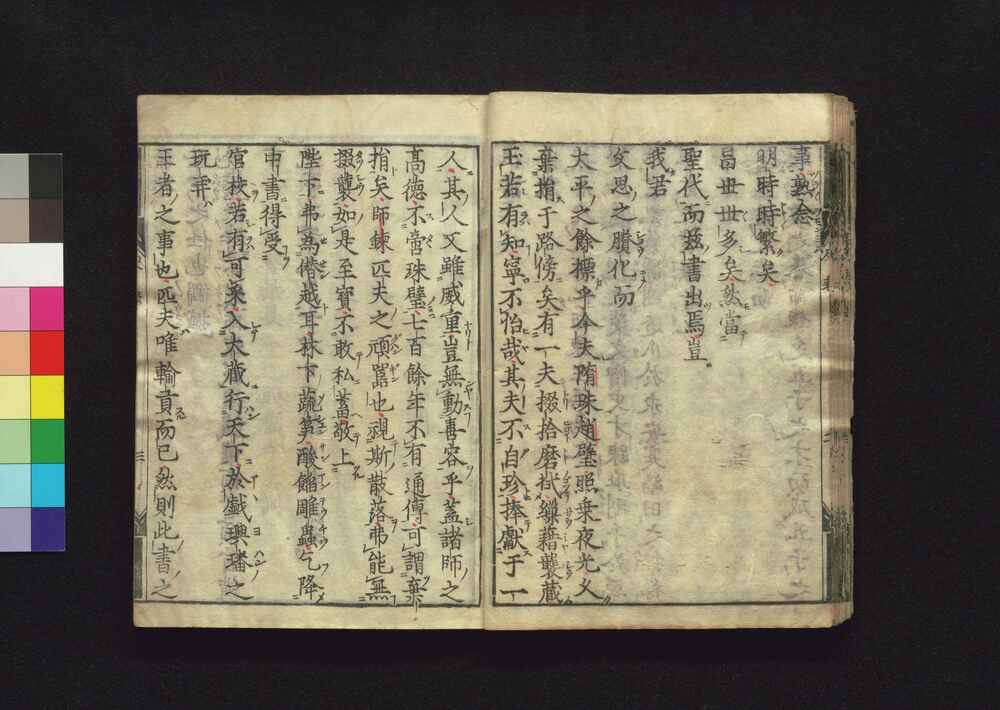 事熟念
明時時繁矣
昌世世多矣然當
聖代而茲書出焉豈
我君
文思之賸化而
大平之餘標乎今夫隋珠趙璧照乗夜光乂
棄捐于路傍矣有一夫掇拾磨拭繅藉襲藏
玉若有知寧不怡哉其夫不自珍捧獻于一
人其人又雖威重豈無動喜容乎蓋諸師之
高德不啻珠璧七百餘年不有通傳可謂棄
捐矣師鍊匹夫之頑嚚也視斯散落弗能無
掇襲如是至寶不敢私蓄敬上
陛下弗爲僭越耳林下蔬笋酸餡雕蟲乞降
中書得受
官校若有可采入大藏行天下於戲璵璠之
玩弄
王者之事也匹夫唯輸貢而已然則此書之